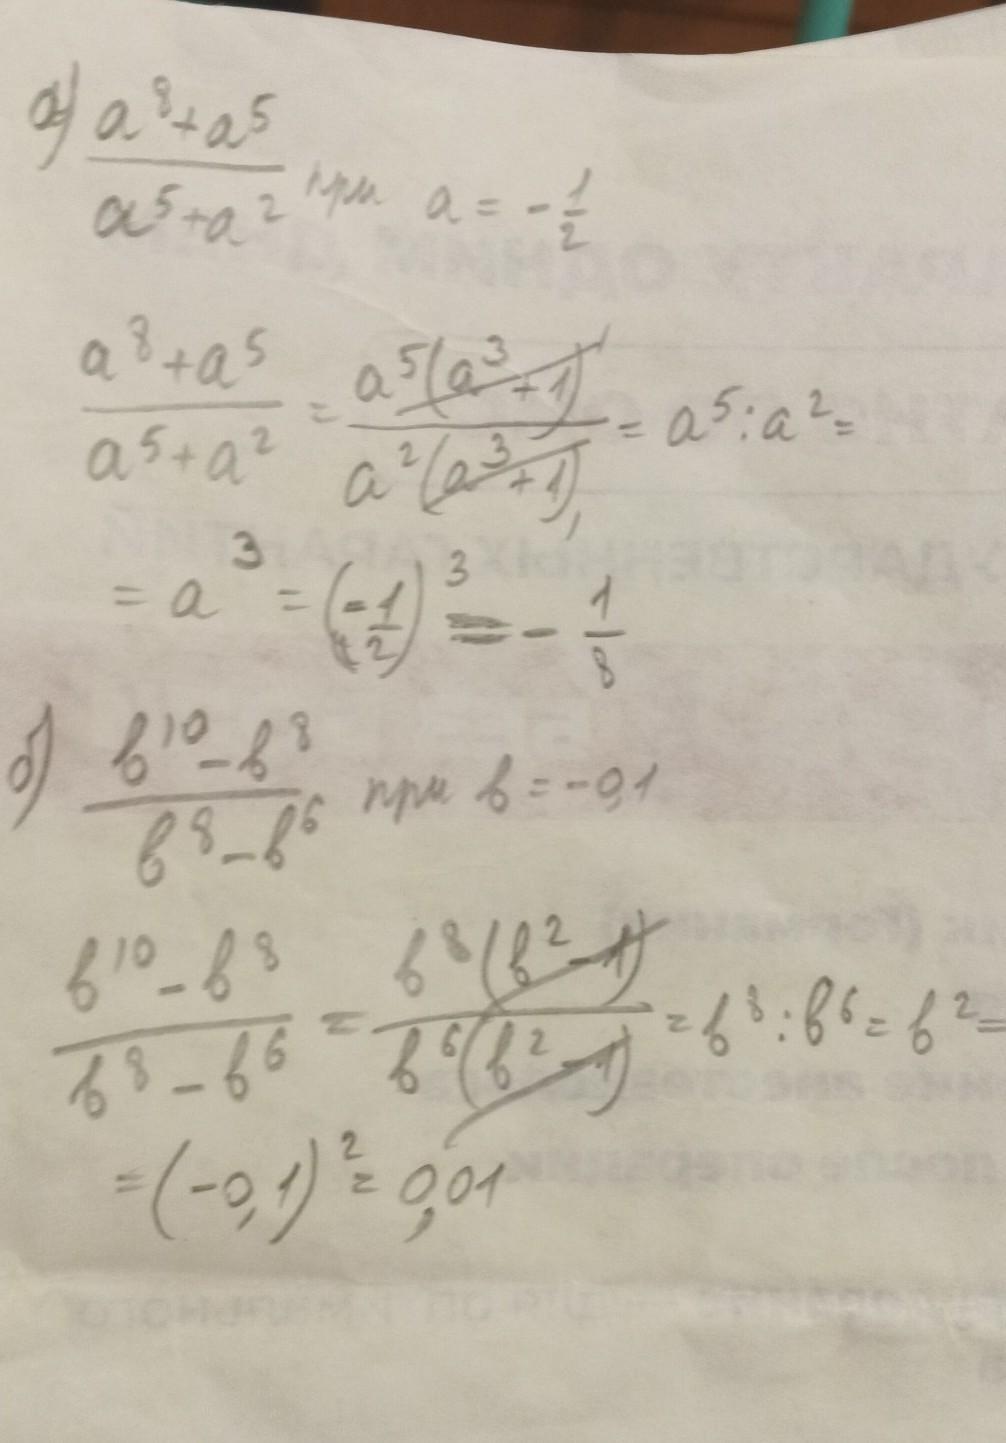 а) a⁸+a⁵ / a⁵+a² при a = -1/2
a⁸+a⁵ / a⁵+a² = a⁵(a³+1) / a²(a³+1) = a⁵:a² =
= a³ = (-1/2)³ = - 1/8
б) b¹⁰-b⁸ / b⁸-b⁶ при b = -0,1
b¹⁰-b⁸ / b⁸-b⁶ = b⁸(b²-1) / b⁶(b²-1) = b⁸:b⁶ = b² =
= (-0,1)² = 0,01